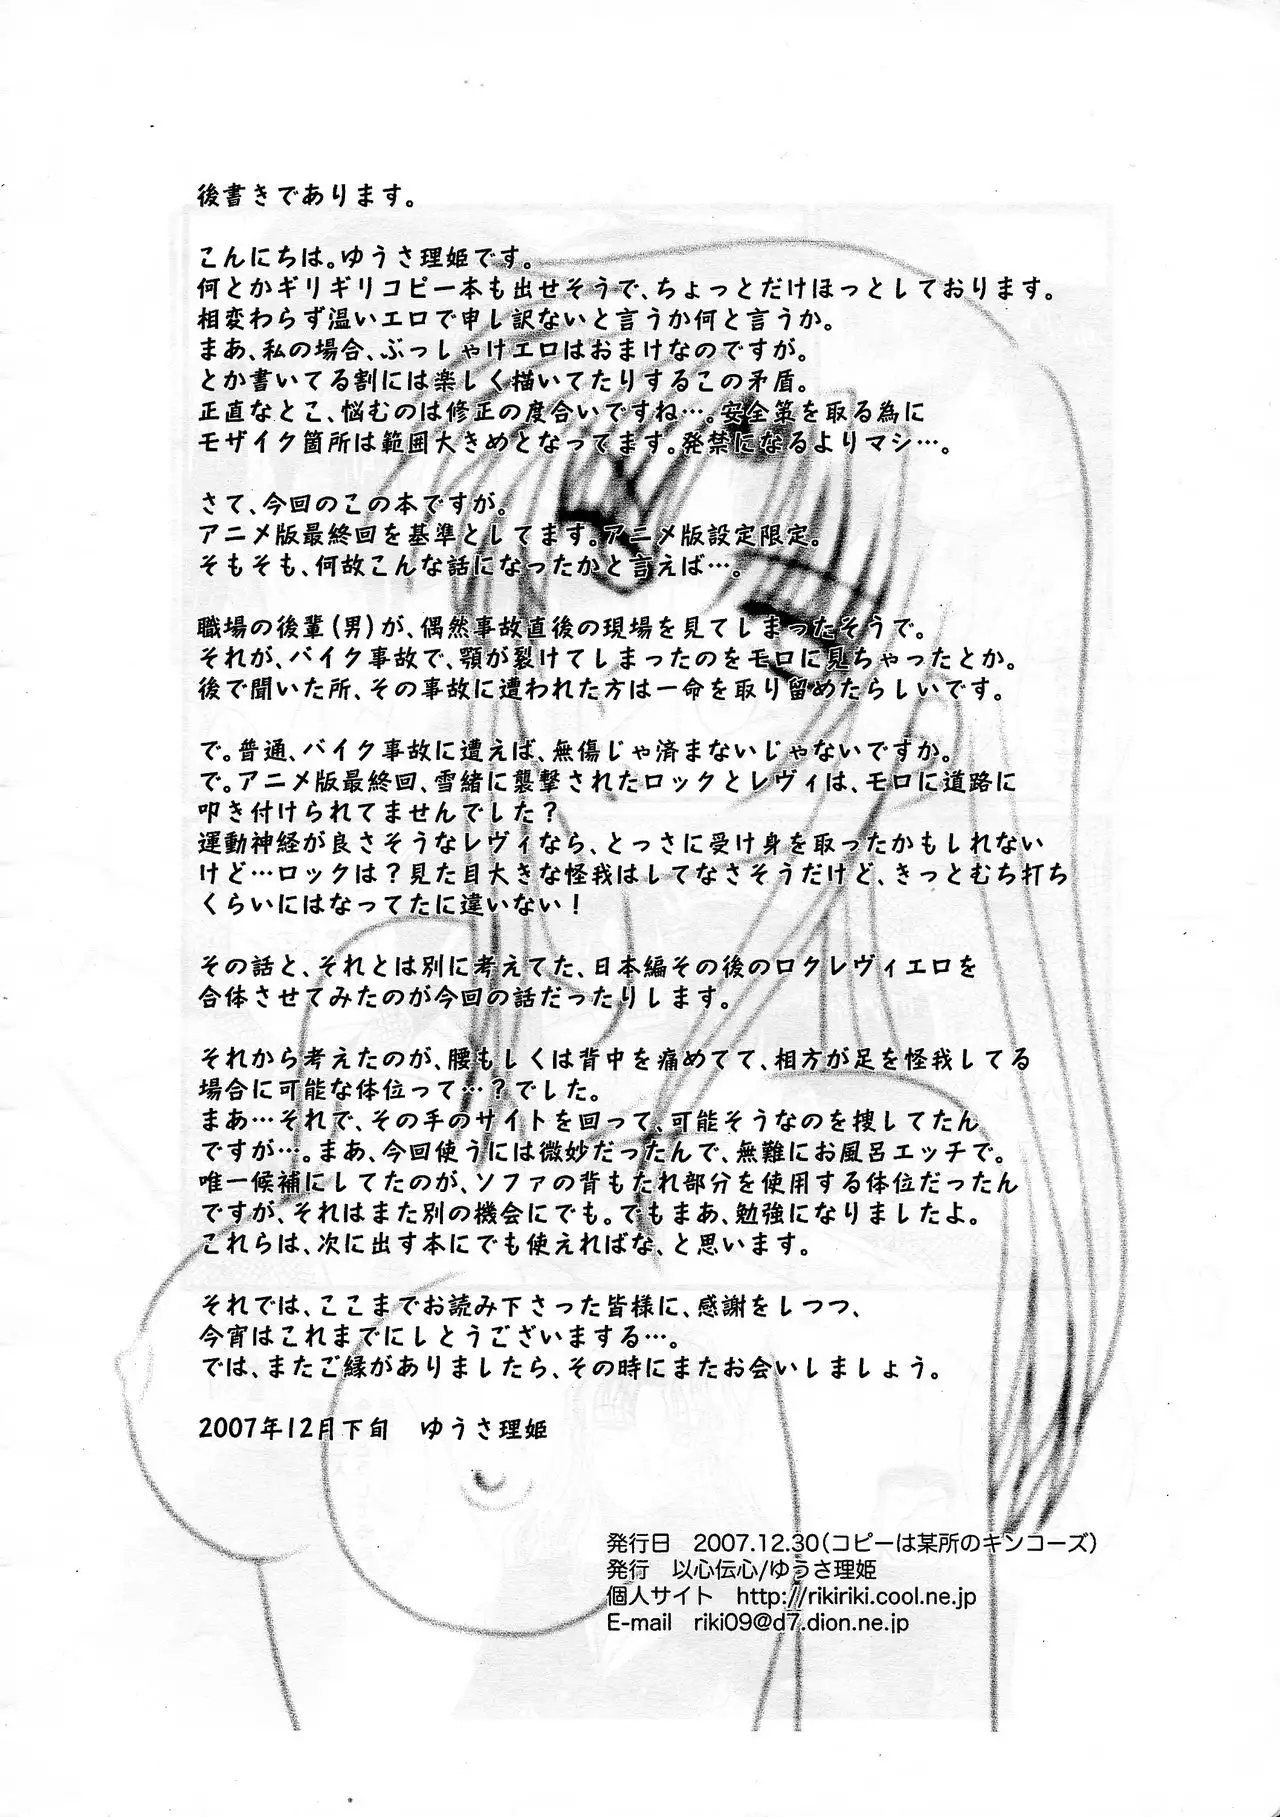 後書きであります。
こんにちは。ゆうさ理姫です。
何とかギリギリコピー本も出せそうで、ちょっとだけほっとしております。
相変わらず温いエロで申し訳ないと言うか何と言うか。
まあ、私の場合、ぶっしゃけエロはおまけなのですが。
とか書いてる割には楽しく描いてたりするこの矛盾。
正直なとこ、悩むのは修正の度合いですね…。安全策を取る為に
モザイク箇所は範囲大きめとなってます。発禁になるよりマシ…。
さて、今回のこの本ですが。
アニメ版最終回を基準としてます。アニメ版設定限定。
そもそも、何故こんな話になったかと言えば…。
職場の後輩(男)が、偶然事故直後の現場を見てしまったそうで。
それが、バイク事故で、顎が裂けてしまったのをモロに見ちゃったとか。
後で聞いた所、その事故に遭われた方は一命を取り留めたらしいです。
で。普通、バイク事故に遭えば、無傷じゃ済まないじゃないですか。
で。アニメ版最終回、雪緒に襲撃されたロックとレヴィは、モロに道路に
叩き付けられてませんでした?
運動神経が良さそうなレヴィなら、とっさに受け身を取ったかもしれない
けど…ロックは?見た目大きな怪我はしてなさそうだけど、きっとむち打ち
くらいにはなってたに違いない!
その話と、それとは別に考えてた、日本編その後のロクレヴィエロを
合体させてみたのが今回の話だったりします。
それから考えたのが、腰もしくは背中を痛めてて、相方が足を怪我してる
場合に可能な体位って…?でした。
まあ…それで、その手のサイトを回って、可能そうなのを捜してたん
ですが…。まあ、今回使うには微妙だったんで、無難にお風呂エッチで。
唯一候補にしてたのが、ソファの背もたれ部分を使用する体位だったん
ですが、それはまた別の機会にでも。でもまあ、勉強になりましたよ。
これらは、次に出す本にでも使えればな、と思います。
それでは、ここまでお読み下さった皆様に、感謝をしつつ、
今宵はこれまでにしとうございまする…。
では、またご縁がありましたら、その時にまたお会いしましょう。
2007年12月下旬　ゆうさ理姫
発行日　2007.12.30(コピーは某所のキンコーズ)
発行　以心伝心/ゆうさ理姫
個人サイト　http://rikiriki.cool.ne.jp
E-mail　riki09@d7.dion.ne.jp